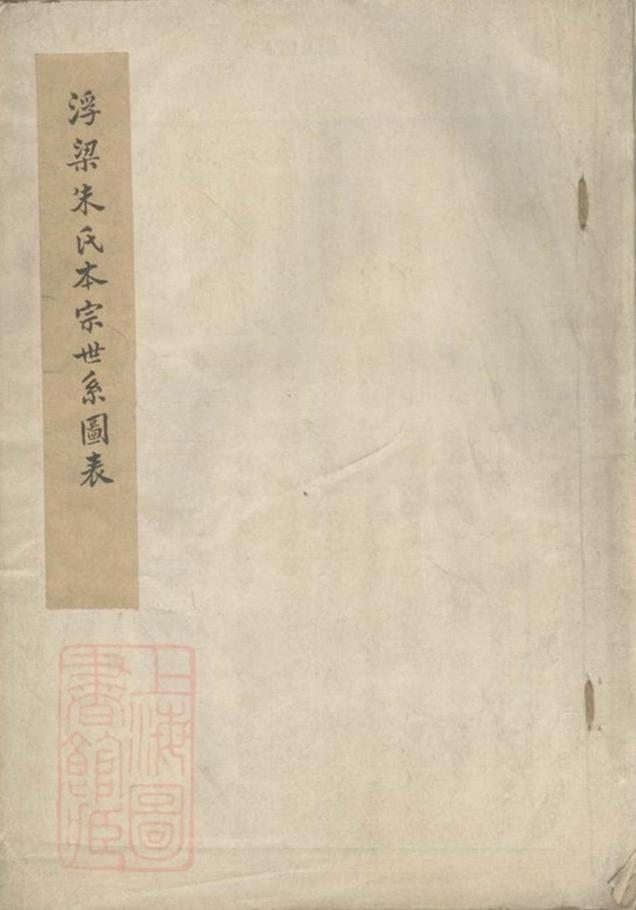 浮梁朱氏本宗世系圖表
上海圖
書館藏